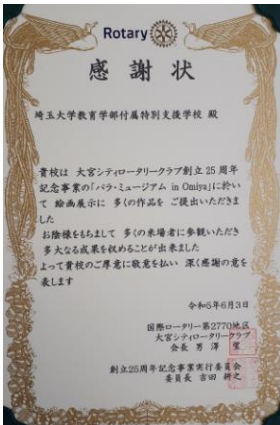 Rotary
感謝状
埼玉大学教育学部付属特別支援学校 殿
貴校は 大宮シティロータリークラブ創立25周年
記念事業の「パラ・ミュージアム in Omiya」に於い
て 絵画展示に 多くの作品を ご提出いただきま
した
お陰様をもちまして 多くの来場者に参観いただき
多大なる成果を収めることが出来ました
よって貴校のご厚意に敬意を払い 深く感謝の意を
表します
令和5年6月3日
国際ロータリー第2770地区
大宮シティロータリークラブ
会長 男澤
創立25周年記念事業実行委員会
委員長 吉田 耕之